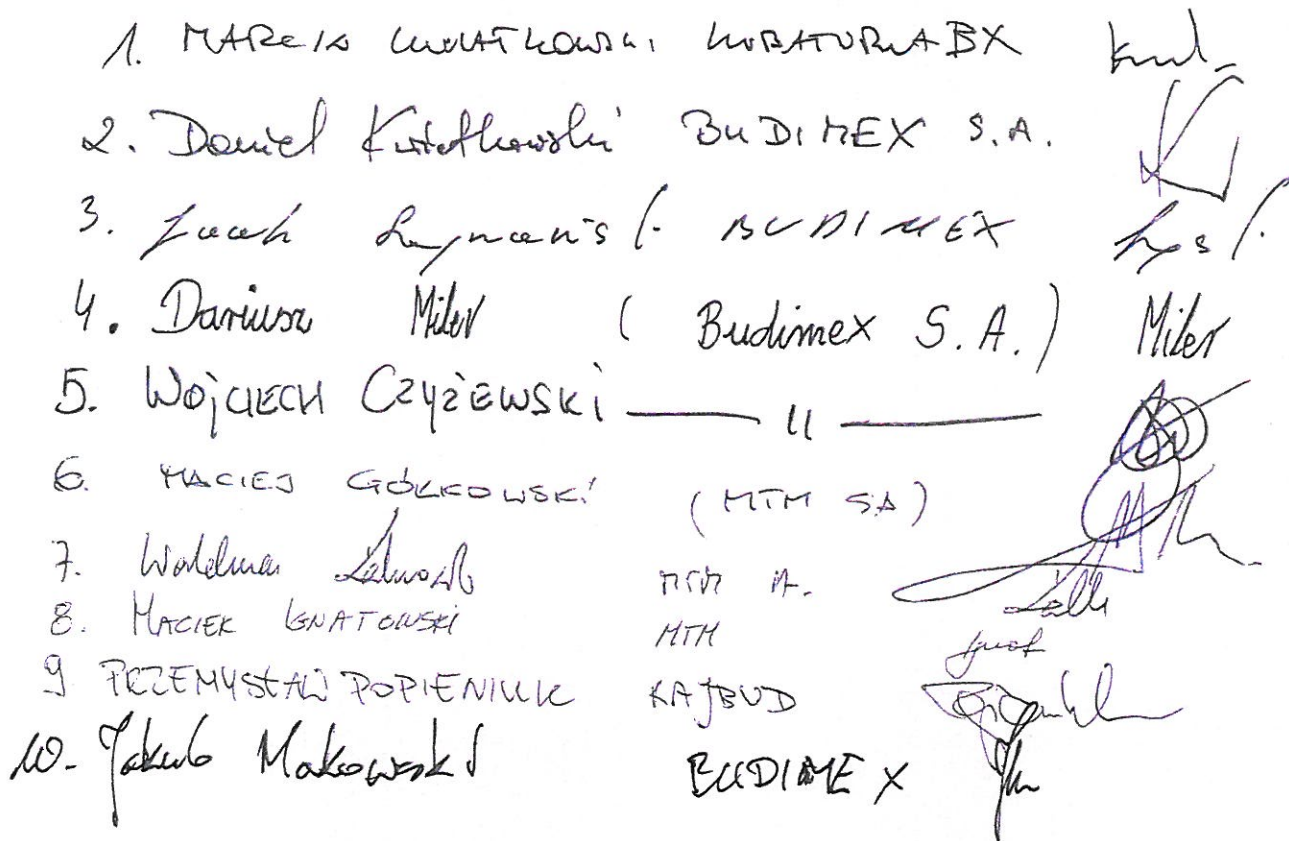 1. MARCIN KWIATKOWSKI
2. Daniel Kwiatkowski BUDIMEX S.A.
3. Jacek BUDIMEX
4. Dariusz Miler (Budimex S.A.) Miler
5. WOJCIECH CZYŻEWSKI —— 11 ——
6. MACIEJ GÓŁKOWSKI (MTM SA)
7. Waldemar MTM
8. MACIEK IGNATOWSKI MTM
9 PRZEMYSŁAW POPIENIUK KAJBUD
10. Jakub Makowski BUDIMEX